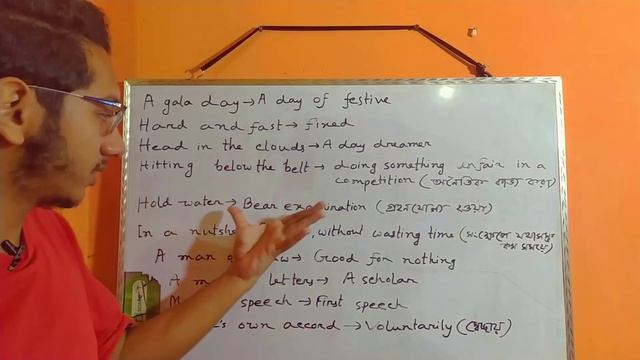 A gala day→A day of festive
Hard and fast→ fixed
Head in the clouds→A day dreamer
Hitting below the belt→ doing something unfair in a
competition (অনৈতিক কাজ করা)
Hold water→ Bear ex ination (গ্রহনযোগ্য হওয়া)
In a nutshe , without wasting time (সংক্ষেপে
A man w→ Good for nothing
A m letters→ A scholar
M speech→First speech
's own accord→Voluntarily (স্বেচ্ছায়)